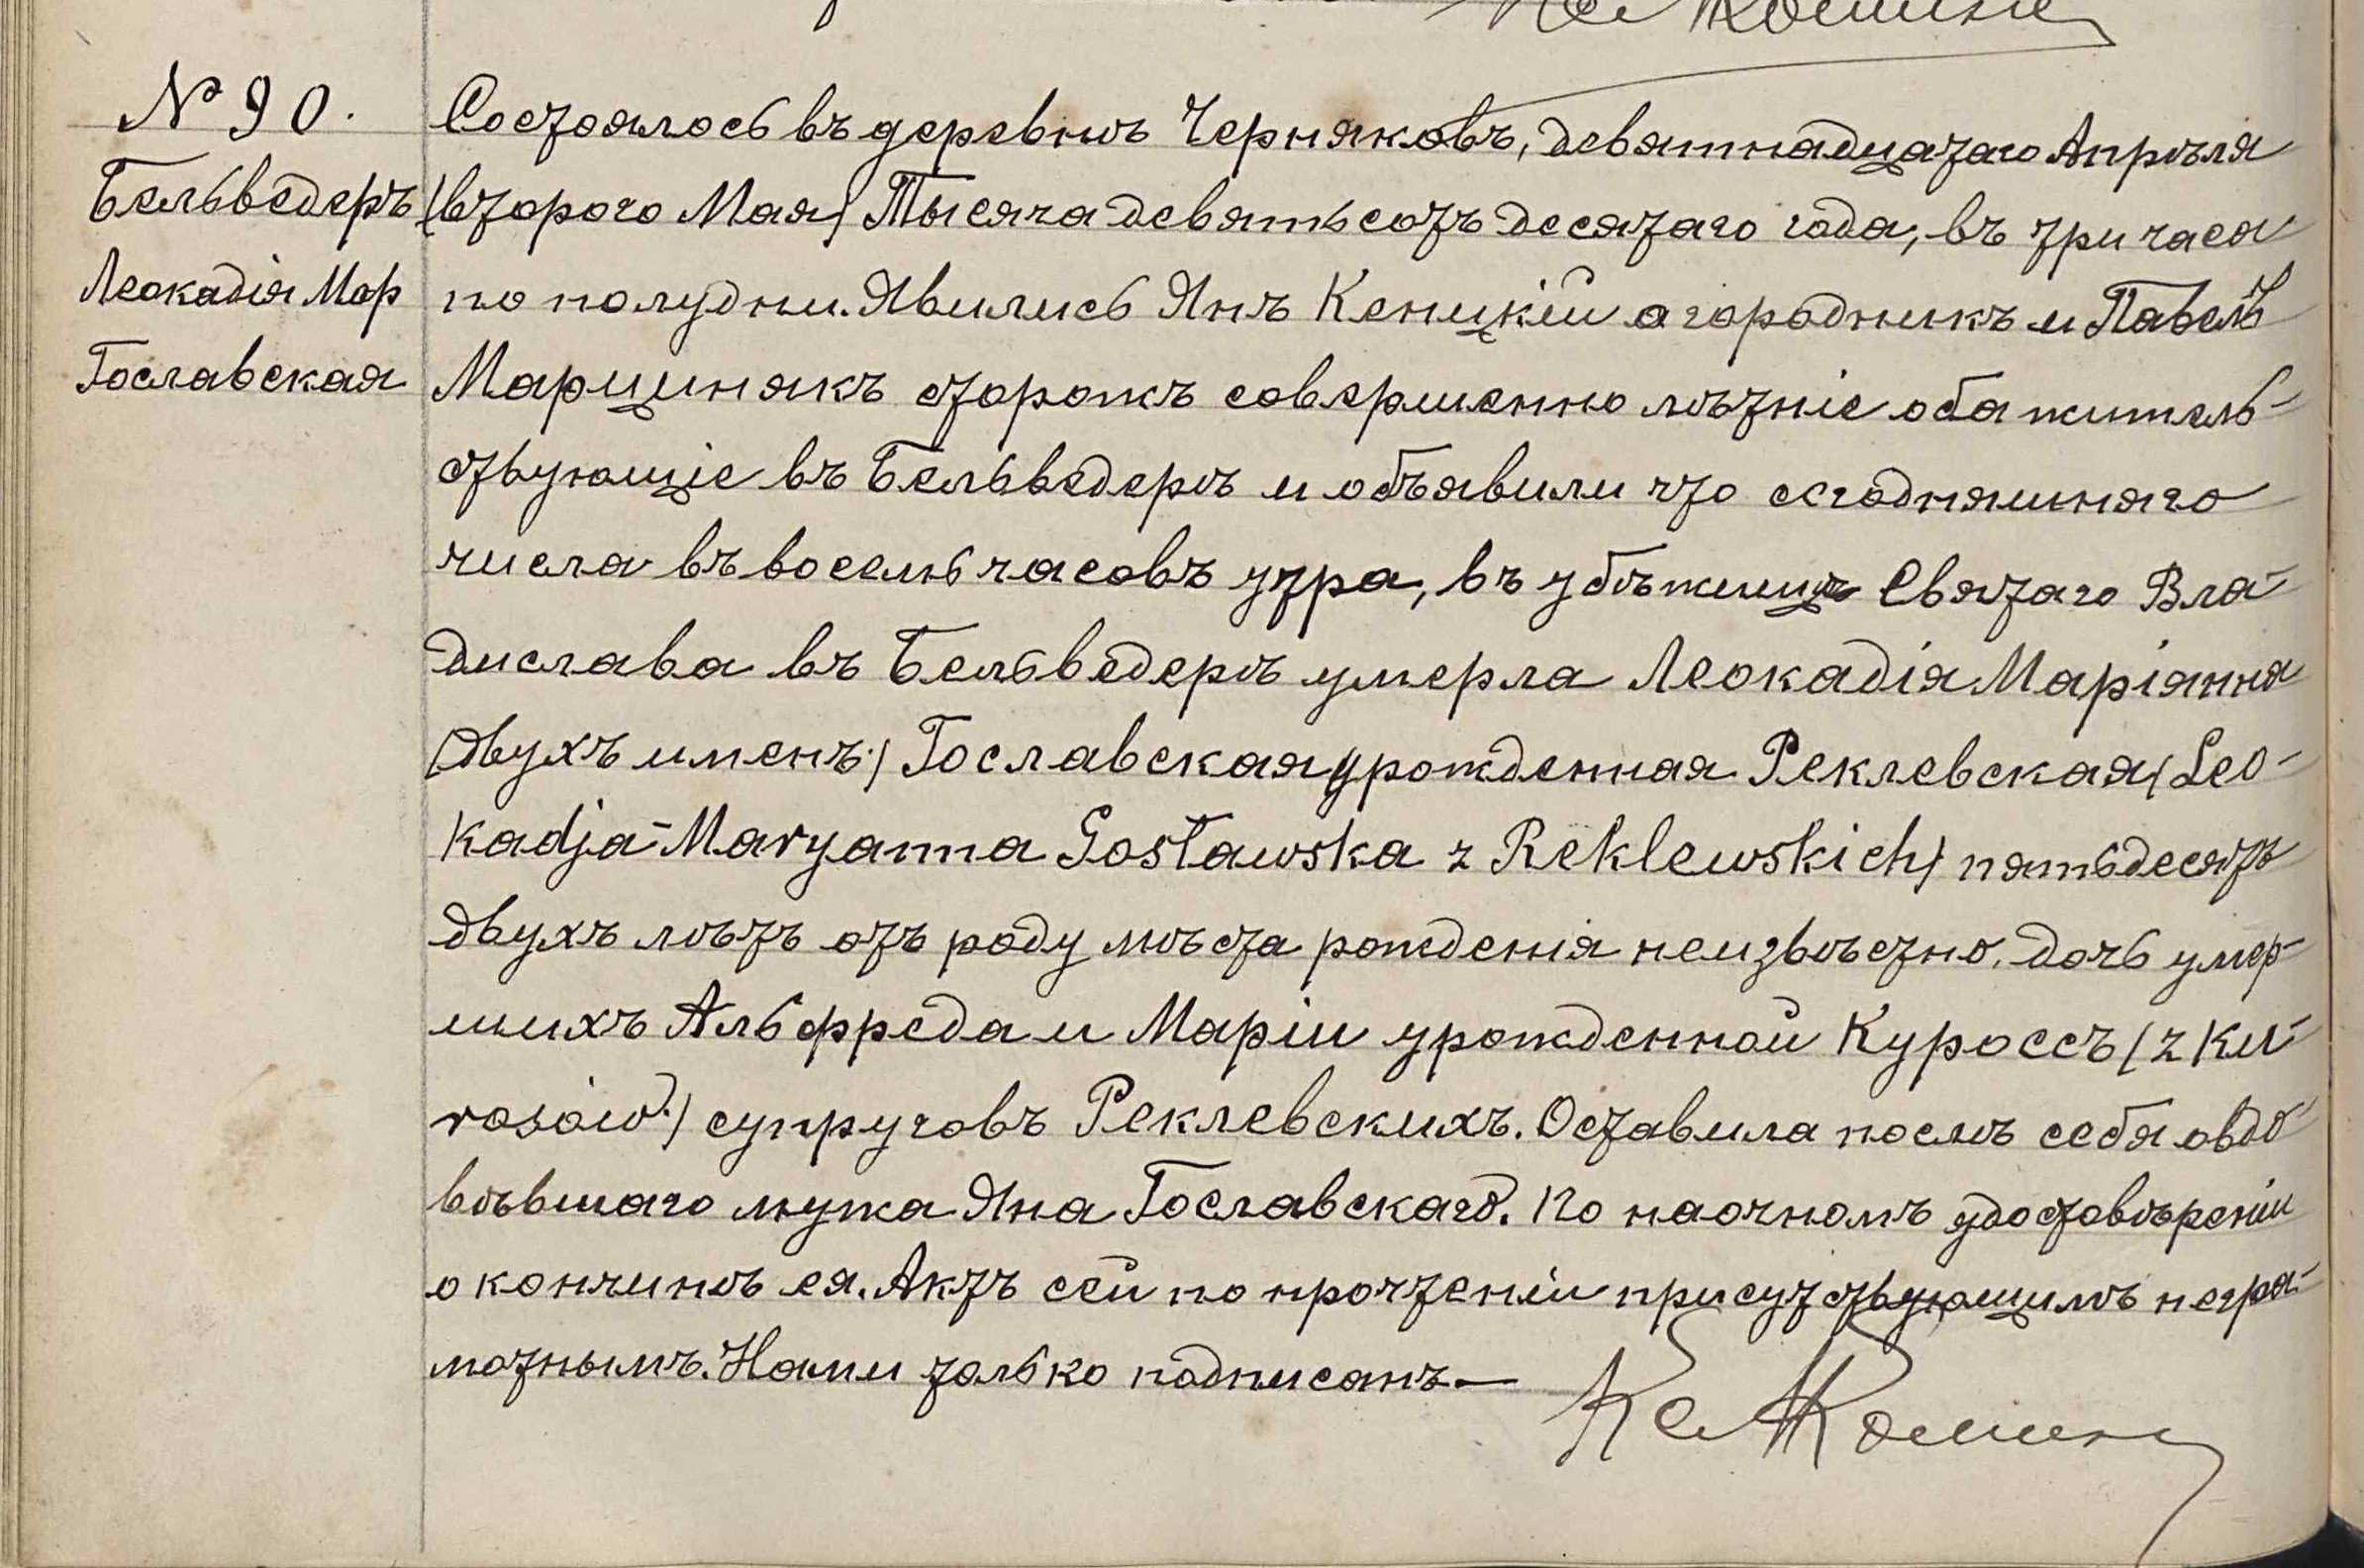 № 90.
Бельведеръ
Леокадія Мар
Гославская
Состоялось въ деревнѣ Черняковъ, девятнадцатаго Апрѣля
(второго Мая) Тысяча девятьсотъ десятаго года, въ три часа
по полудни. Явились Янъ Кеницкій огородникъ и Павелъ
Марцинякъ сторожъ совершенно лѣтніе оба житель-
ствующіе въ Бельведерѣ и объявили что сегодняшняго
числа въ восемь часовъ утра, въ убѣжищѣ Святаго Вла-
дислава въ Бельведерѣ умерла Леокадія Маріянна
(двухъ именъ) Гославская урожденная Реклевская (Leo-
kadja-Maryanna Gosławska z Reklewskich) пятьдесятъ
двухъ лѣтъ отъ роду мѣста рожденія неизвѣстно. дочь умер-
шихъ Альфреда и Маріи урожденной Куроссъ (z Ku-
rosów.) супруговъ Реклевскихъ. Оставила послѣ себя овдо-
вѣвшаго мужа Яна Гославскаго. По наочномъ удостовѣреніи
о кончинѣ ея. Актъ сей по прочтеніи присутствующимъ негра-
мотнымъ. Нами только подписанъ —